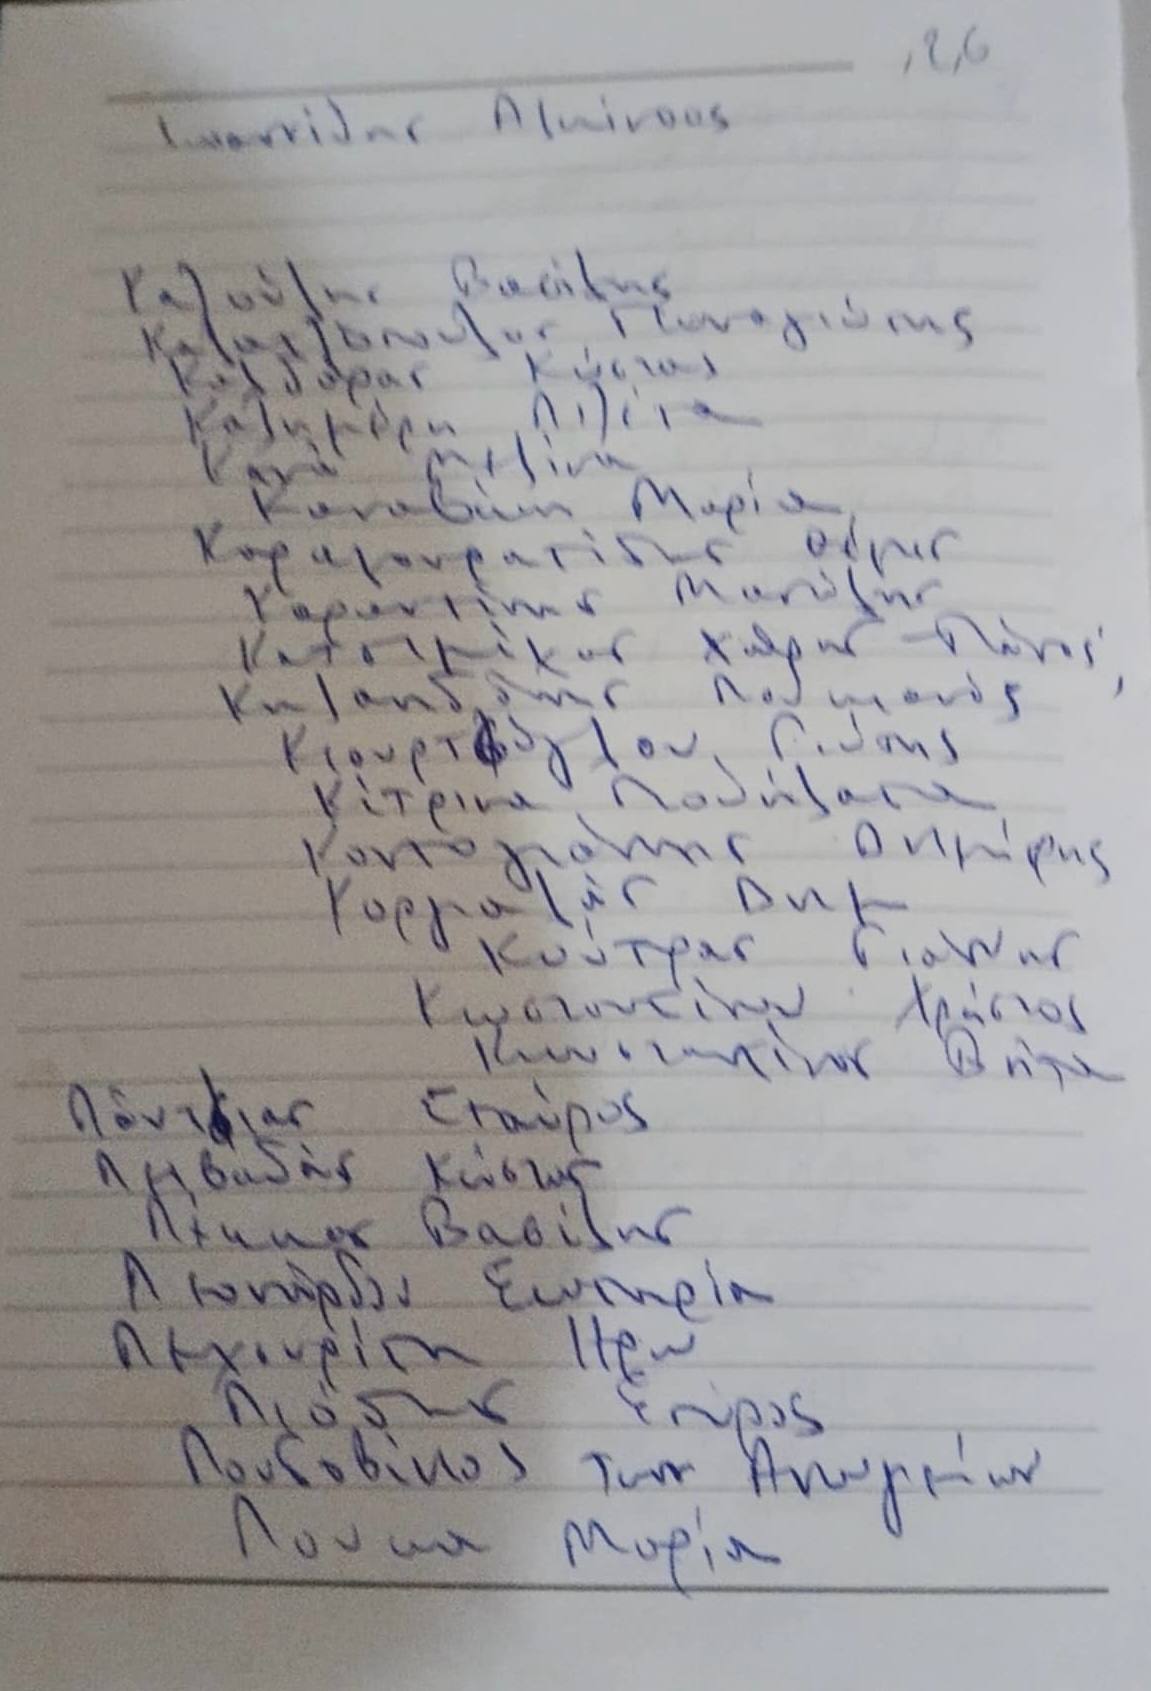 ,2,6
Ιωαννίδης Αλκίνοος
Καζούλης Βασίλης
Καλαντζόπουλος Παναγιώτης
Καλδάρας Κώστας
Καλημέρη Λιζέτα
Κανά Μελίνα
Καναβάκη Μαρία
Καραμουρατίδης Θέμης
Καραντίνης Μανώλης
Κατσιμίχας Χάρης - Πάνος,
Κηλαηδόνης Λουκιανός
Κιουρτσόγλου Γιώτης
Κίτρινα Ποδήλατα
Κοντογιάννης Δημήτρης
Κοργιαλάς Δημ
Κούτρας Γιάννης
Κωσταντίνου Χρήστος
Κωνσταντίνος Βήτα
Λάντσιας Σταύρος
Λειβαδάς Κώστας
Λέκκας Βασίλης
Λεονάρδου Σωτηρία
Λεχουρίτη Ηρω
Λιόσης Σπύρος
Λουδοβίκος των Ανωγείων
Λουκα Μαρία